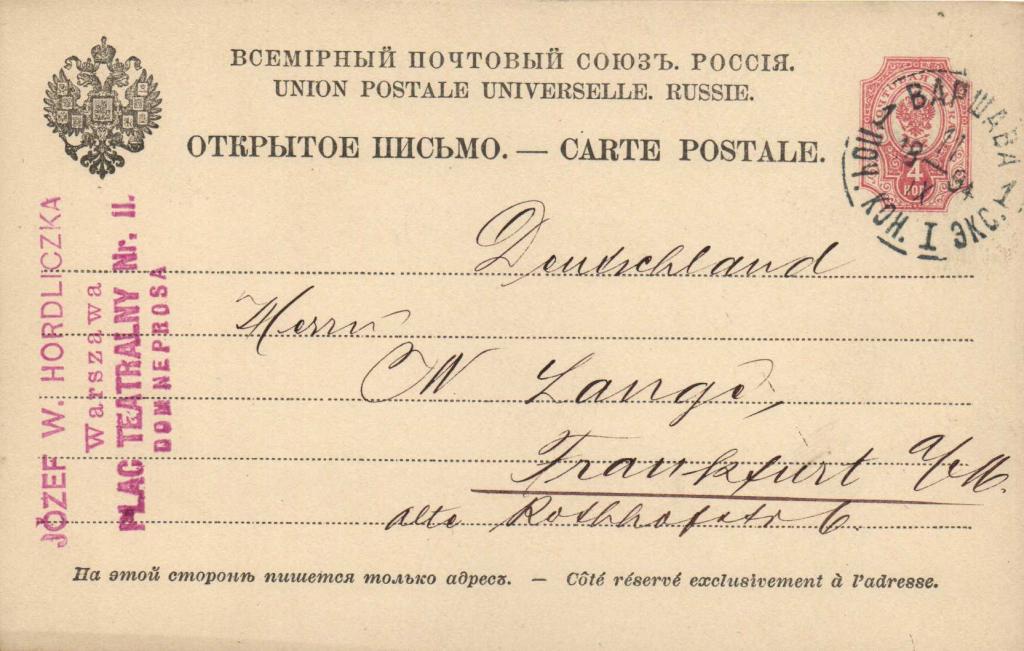 ВСЕМІРНЫЙ ПОЧТОВЫЙ СОЮЗЪ. РОССІЯ.
UNION POSTALE UNIVERSELLE. RUSSIE.
ОТКРЫТОЕ ПИСЬМО. — CARTE POSTALE.
4
КОП
ВАРШАВА 1
11
X
94
I ЭКС.
JÓZEF W. HORDLICZKA
Warszawa
PLAC TEATRALNY Nr. 11.
DOM NEPROSA
Deutschland
Herrn
W Lange,
Frankfurt a/M.
alte Rothhofstr 6.
На этой сторонѣ пишется только адресъ. — Côté réservé exclusivement à l'adresse.